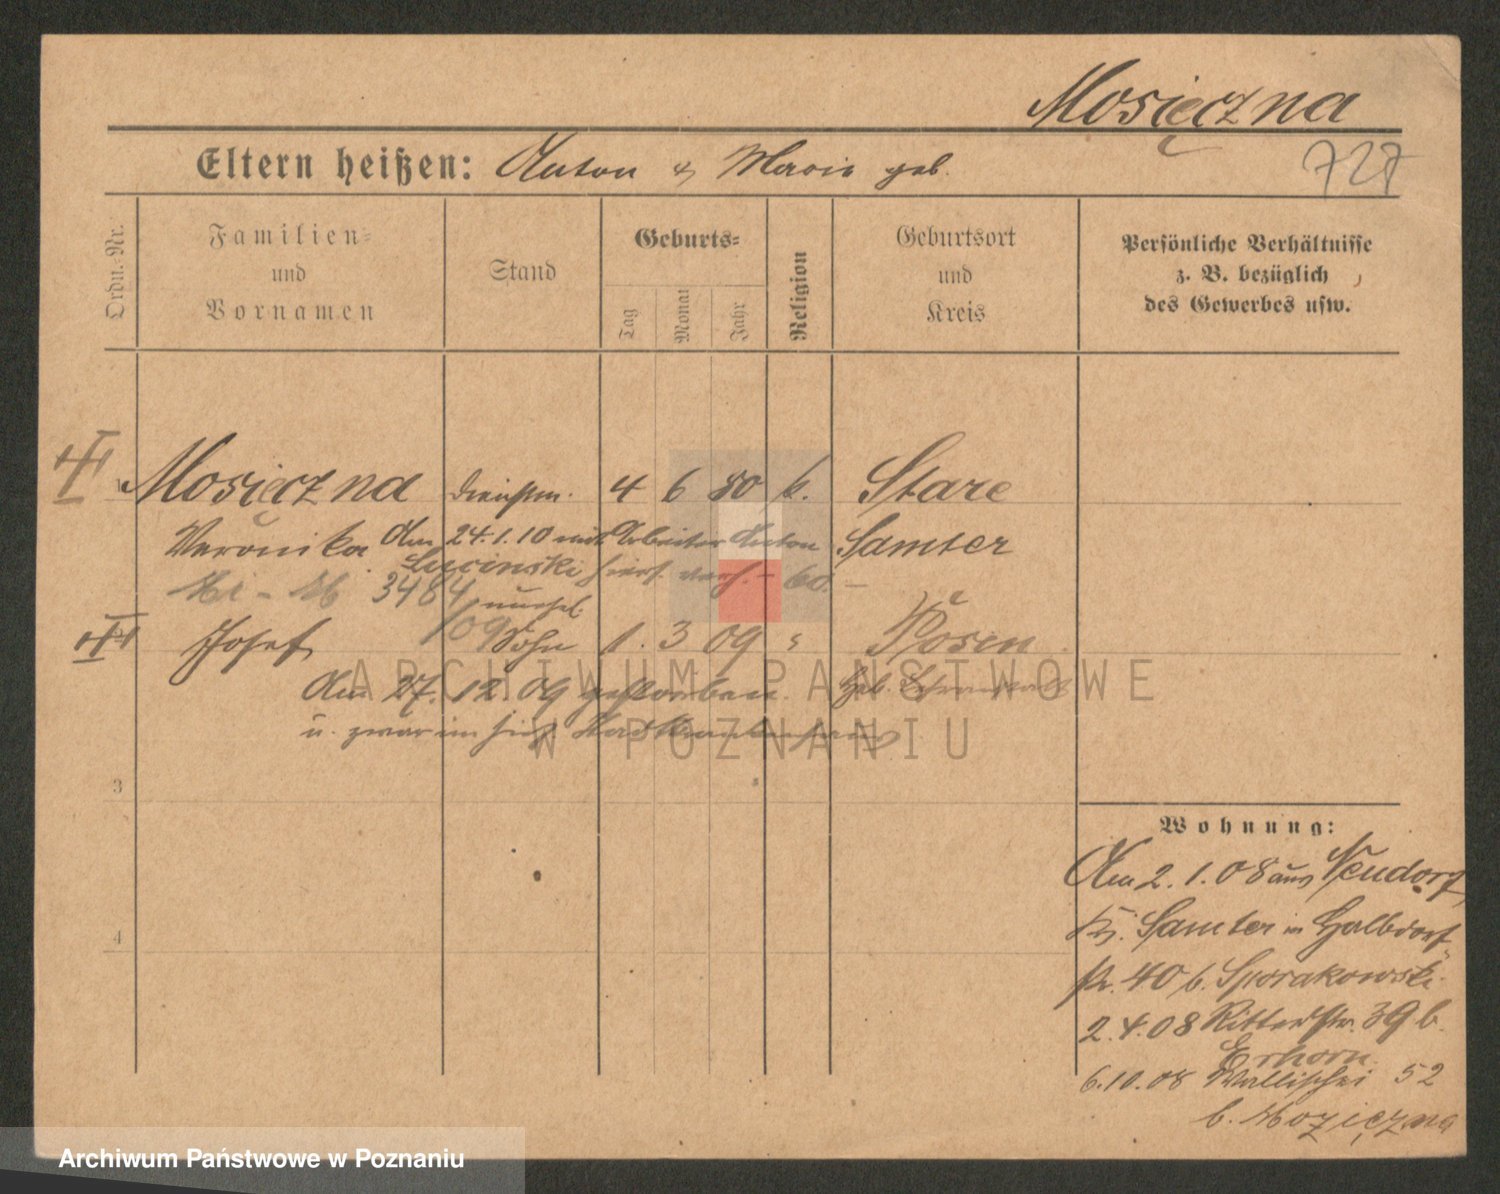 Mosięczna
Eltern heißen: Anton & Marie geb.
727
Ordn.-Nr.
Familien-
und
Vornamen
Stand
Geburts-
Tag
Monat
Jahr
Religion
Geburtsort
und
Kreis
Persönliche Verhältnisse
z. B. bezüglich
des Gewerbes usw.
Mosięczna Dienstm. 4 6 80 k. Stare
Veronika Am 24.1.10 mit Arbeiter Anton Samter
Lucinski hier verh.
3484
/09
unehel.
Josef Sohn 1. 3 09 Posen
Am 27.12.09 gestorben. Geb.
u. zwar im hies. Stadtkrankenhaus
3
4
Wohnung:
Am 2.1.08 aus Neudorf
Kr. Samter in Halbdorf-
str. 40 b. Sporakowski
2.4.08 Ritterstr. 39 b.
Erhorn
6.10.08 Wallischei 52
b. Mozięczna
ARCHIWUM PAŃSTWOWE
W POZNANIU
Archiwum Państwowe w Poznaniu